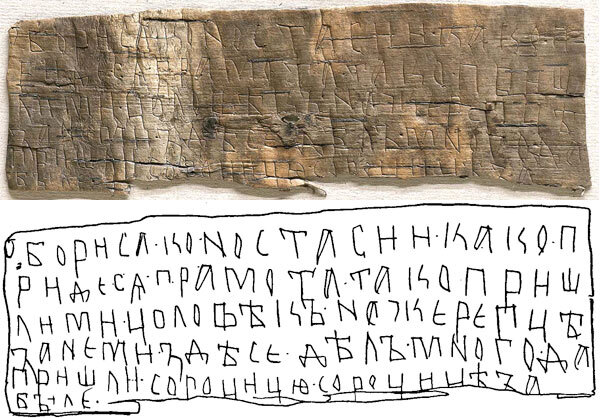 Ѿ БОРИСА·КО НОСТАСИИ·КАКО·П
РИДЕ СА·ГРАМОТА·ТАКО ПРИШ
ЛИ МИ·ЦОЛОВѢКЪ·НА ЖЕРЕПЦѢ
ЗАНЕ МИ·ЗДѢСЕ·ДѢЛЪ·МНОГО·ДА
ПРИШЛИ·СОРОЦИЦЮ·СОРОЦИЦѢ ЗА
БЪІЛЕ·